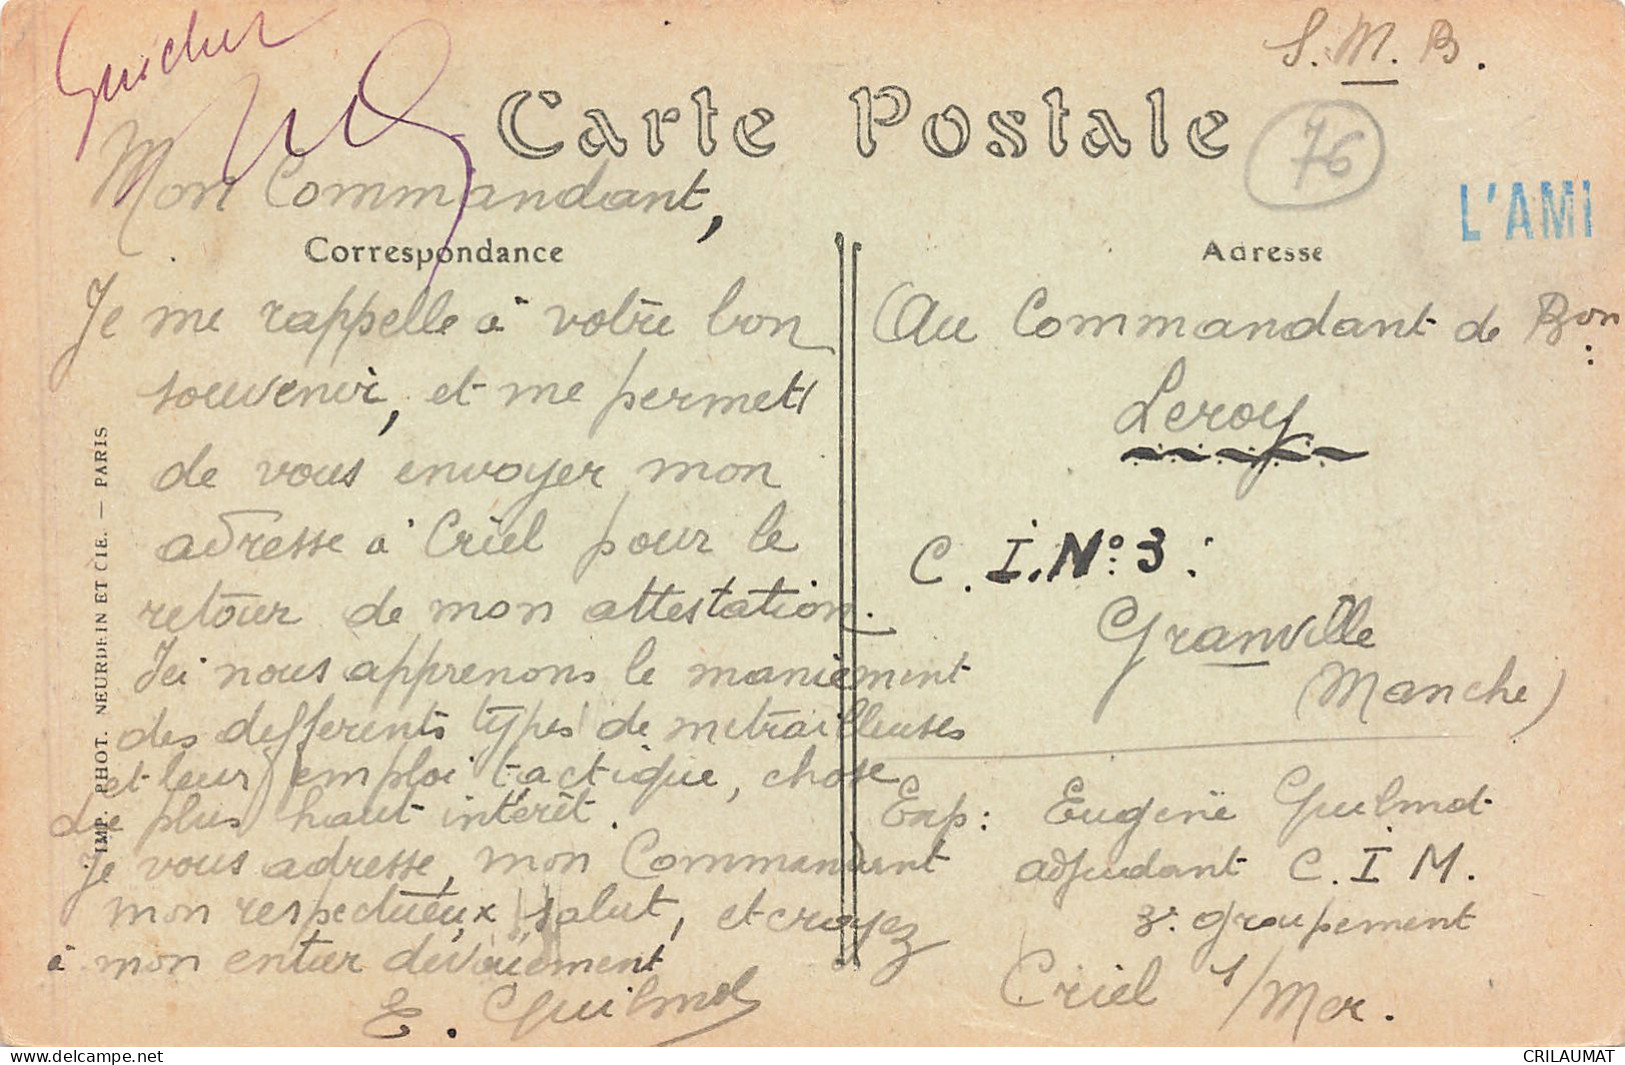 Guichet
S. M. B.
Carte Postale
76
L'AMI
Mon Commandant,
Correspondance
Je me rappelle à votre bon
souvenir, et me permets
de vous envoyer mon
adresse à Criel pour le
retour de mon attestation.
Ici nous apprenons le maniement
des differents types de mitrailleuses
et leur emploi tactique, chose
de plus haut intérêt.
Je vous adresse, mon Commandant
mon respectueux salut, et croyez
à mon entier dévouement
E. Guilmot
IMP. PHOT. NEURDEIN ET CIE. — PARIS
Adresse
Au Commandant de Bon
Leroy
C. I. No: 3:
Granville
(Manche)
Exp: Eugène Guilmot
adjudant C. I M.
3e groupement
Criel s/Mer.
CRILAUMAT